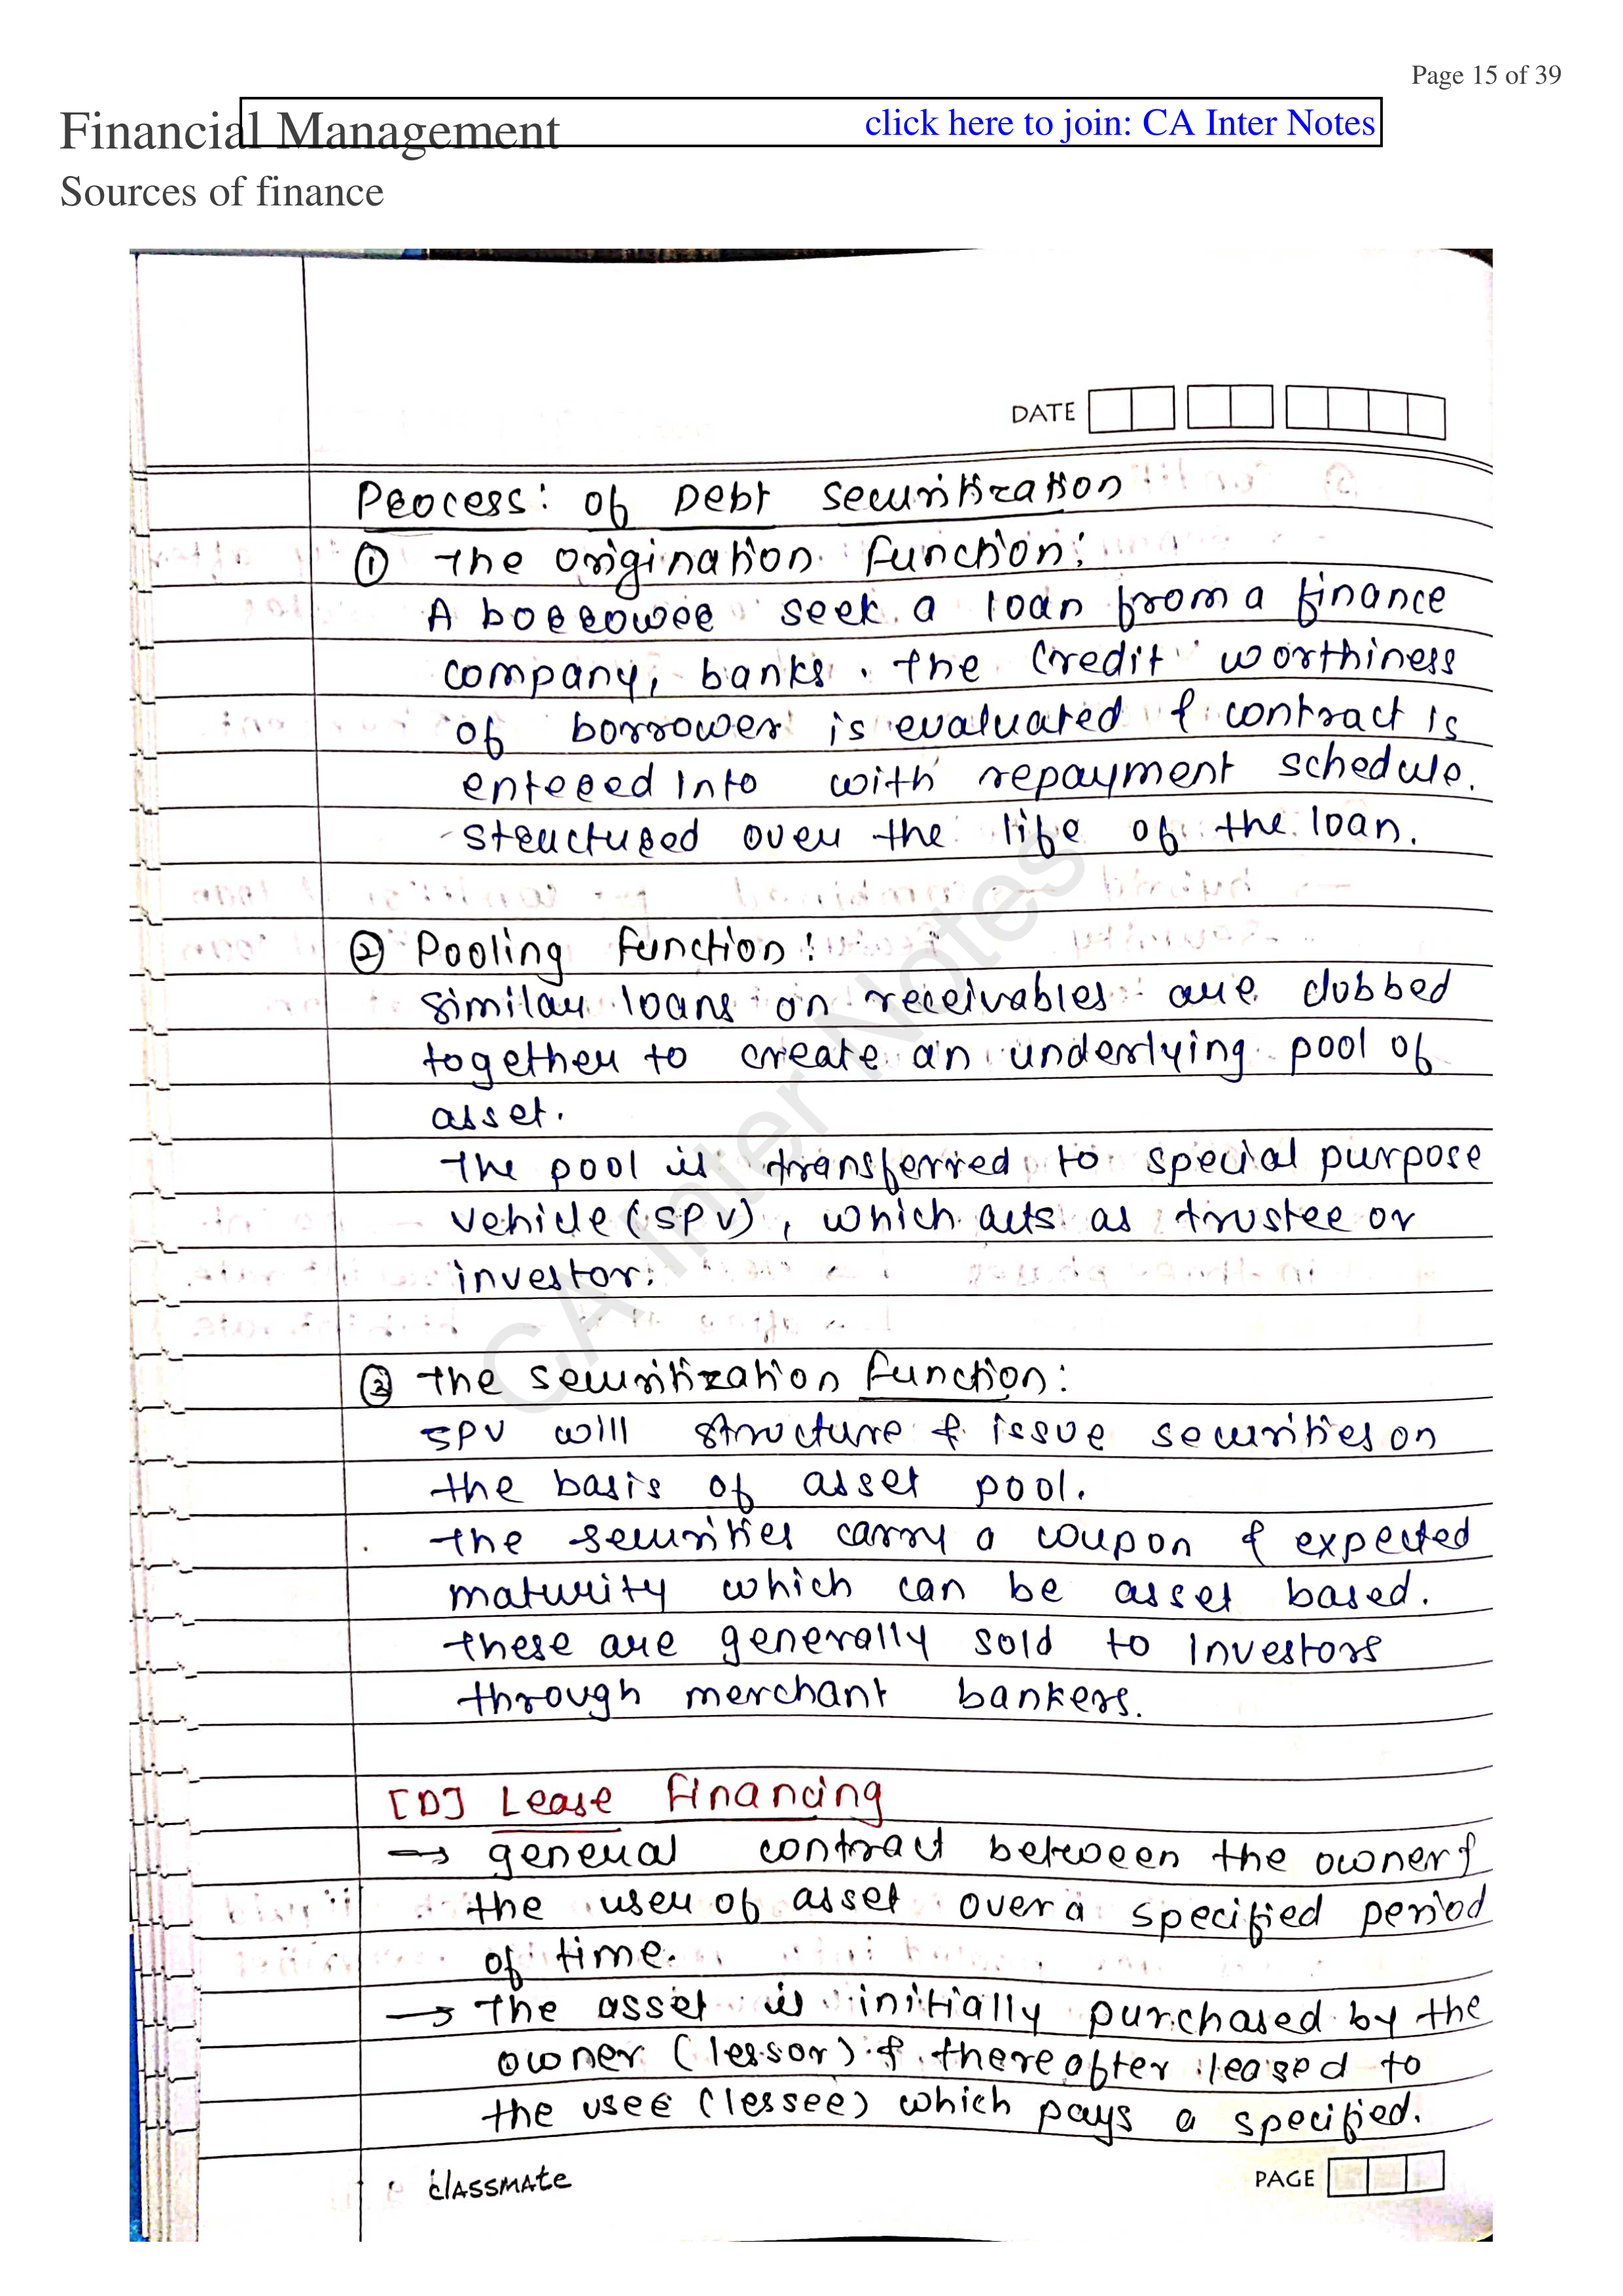 Page 15 of 39
Financial Management
click here to join: CA Inter Notes
Sources of finance
DATE
Process: of Debt securitization
① The origination function:
A borrower seek a loan from a finance
company, banks. the credit worthiness
of borrower is evaluated & contract is
entered into with repayment schedule.
structured over the life of the loan.
② Pooling function:
similar loans on receivables are clubbed
together to create an underlying pool of
asset.
The pool is transferred to special purpose
vehicle (SPV), which acts as trustee or
investor.
③ the securitization function:
SPV will structure & issue securities on
the basis of asset pool.
the securities carry a coupon & expected
maturity which can be asset based.
these are generally sold to investors
through merchant bankers.
[D] Lease Financing
→ general contract between the owner &
the user of asset over a specified period
of time.
→ The asset is initially purchased by the
owner (lessor) & thereafter leased to
the user (lessee) which pays a specified.
CLASSMATE
PAGE
CA Inter Notes